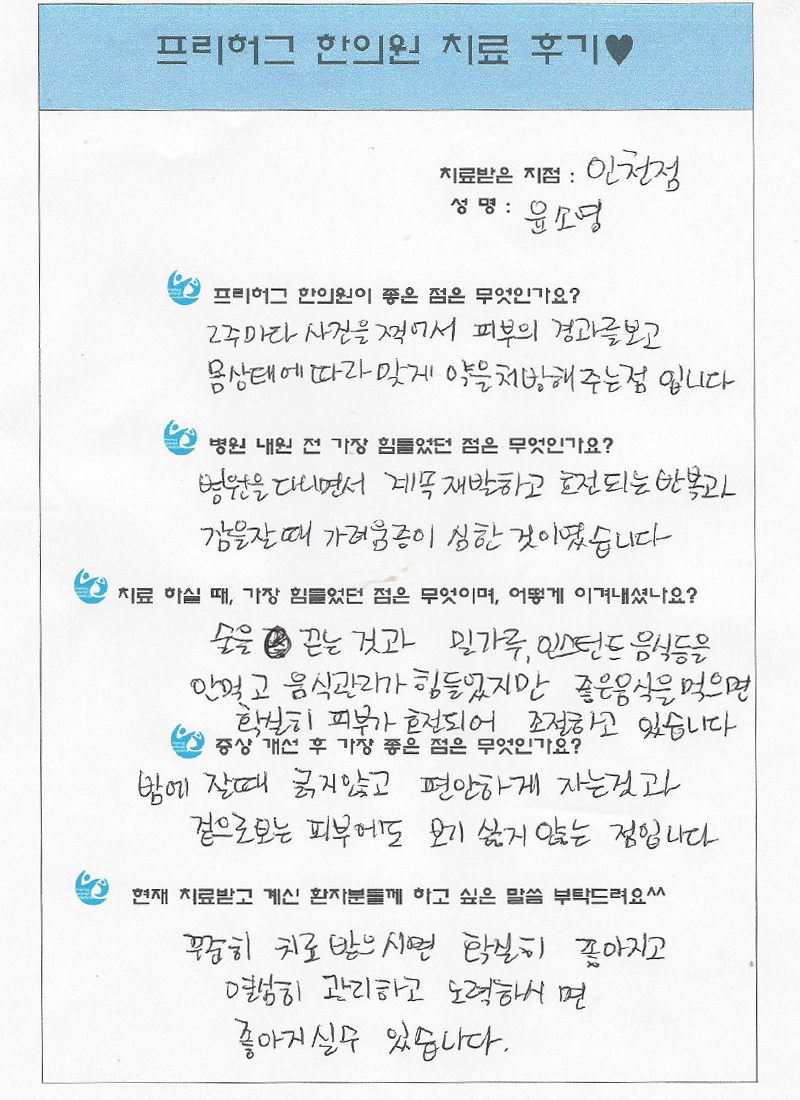 프리허그 한의원 치료 후기♥
치료받은 지점 : 인천점
성 명 : 윤소영
프리허그 한의원이 좋은 점은 무엇인가요?
2주마다 사진을 찍어서 피부의 경과를보고
몸상태에따라 맞게 약을처방해주는점 입니다
병원 내원 전 가장 힘들었던 점은 무엇인가요?
병원을 다니면서 계속 재발하고 호전되는 반복과
잠을잘때 가려움증이 심한 것이였습니다
치료 하실 때, 가장 힘들었던 점은 무엇이며, 어떻게 이겨내셨나요?
술을 끈는 것과 밀가루, 인스턴트 음식등을
안먹고 음식관리가 힘들었지만 좋은음식을 먹으면
확실히 피부가 호전되어 조절하고 있습니다
증상 개선 후 가장 좋은 점은 무엇인가요?
밤에 잘때 긁지않고 편안하게 자는것과
겉으로보는 피부에도 보기 싫지 않는 점입니다
현재 치료받고 계신 환자분들께 하고 싶은 말씀 부탁드려요^^
꾸준히 치료 받으시면 확실히 좋아지고
열심히 관리하고 노력하시면
좋아지실수 있습니다.